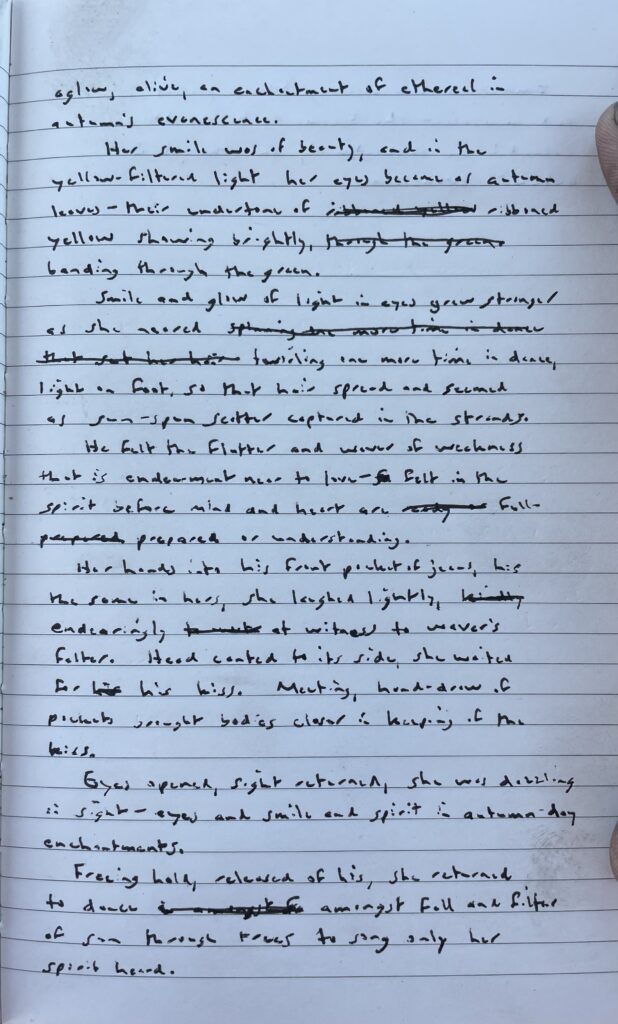 aglow, alive, an enchantment of ethereal in
autumn's evanescence.
Her smile was of beauty, and in the
yellow-filtered light her eyes became as autumn
leaves - their undertone of ribboned yellow ribboned
yellow showing brightly, through the green
banding through the green.
Smile and glow of light in eyes grew stronger
as she neared spinning one more time in dance
that set her hair twirling one more time in dance,
light on foot, so that hair spread and seemed
as sun-spun scatter captured in the strands.
He felt the flutter and waver of weakness
that is endearment near to love - felt in the
spirit before mind and heart are ready full-
prepared prepared or understanding.
Her hands into his front pocket of jeans, his
the same in hers, she laughed lightly, kindly
endearingly at witness to waver's
falter. Head canted to its side, she waited
for his his kiss. Meeting, hand-draw of
pockets brought bodies closer in keeping of the
kiss.
Eyes opened, sight returned, she was dazzling
in sight - eyes and smile and spirit in autumn-day
enchantments.
Freeing hold, released of his, she returned
to dance in amongst amongst fall and filter
of sun through trees to song only her
spirit heard.